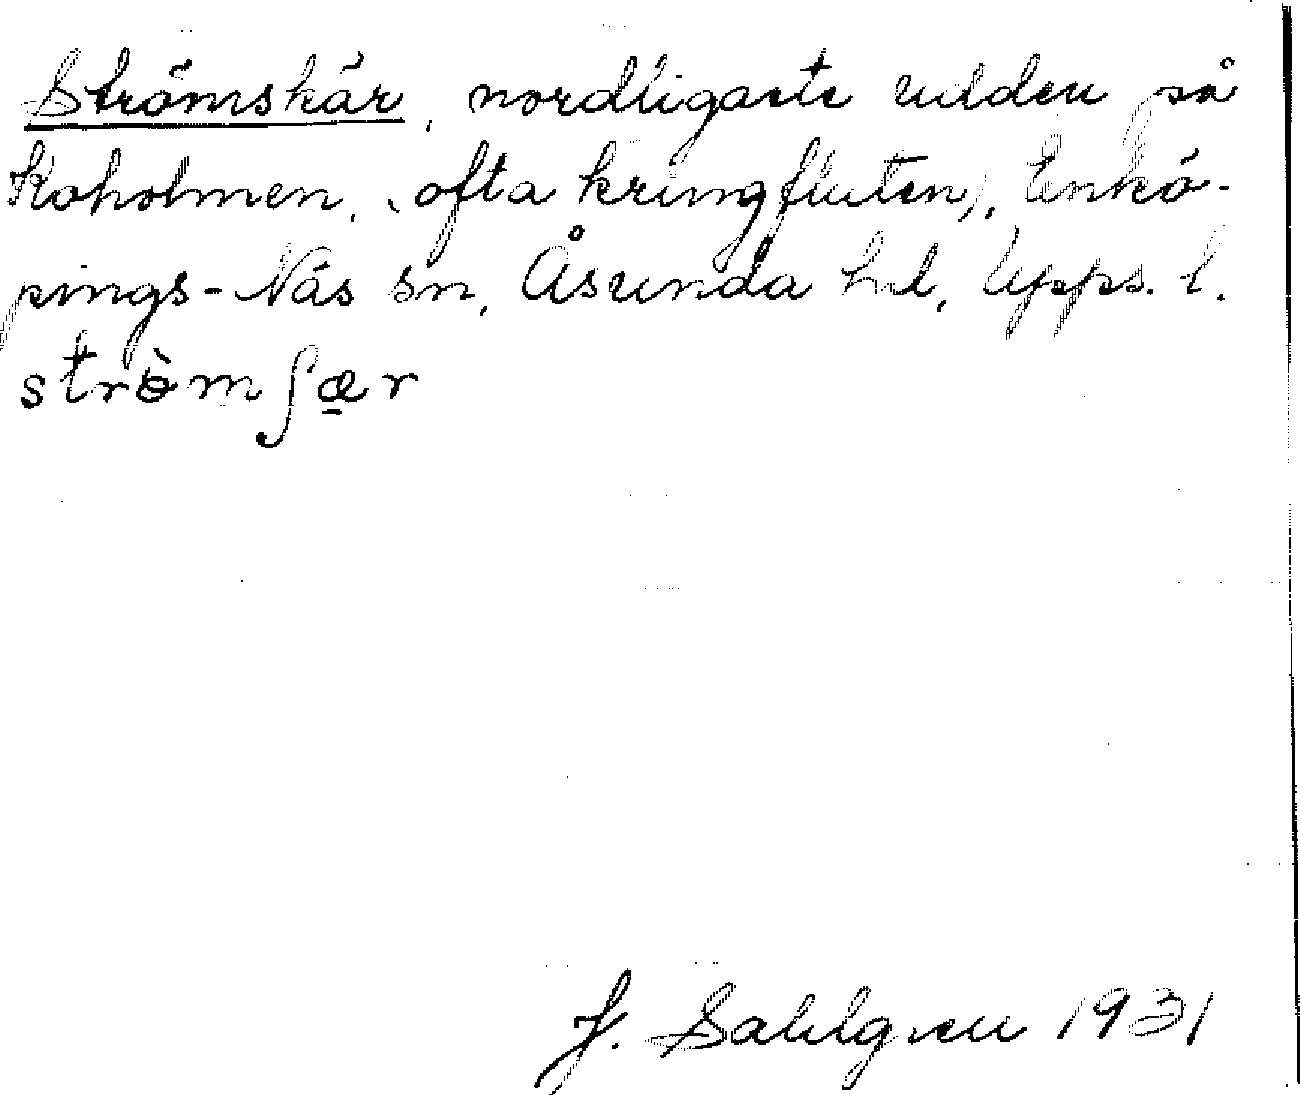 Strömskär, nordligaste udden på
Koholmen, (ofta kringfluten), Enkö-
pings-Näs sn, Åsunda hd, Upps. l.
strö̀mʃæ̠r
J. Sahlgren 1931